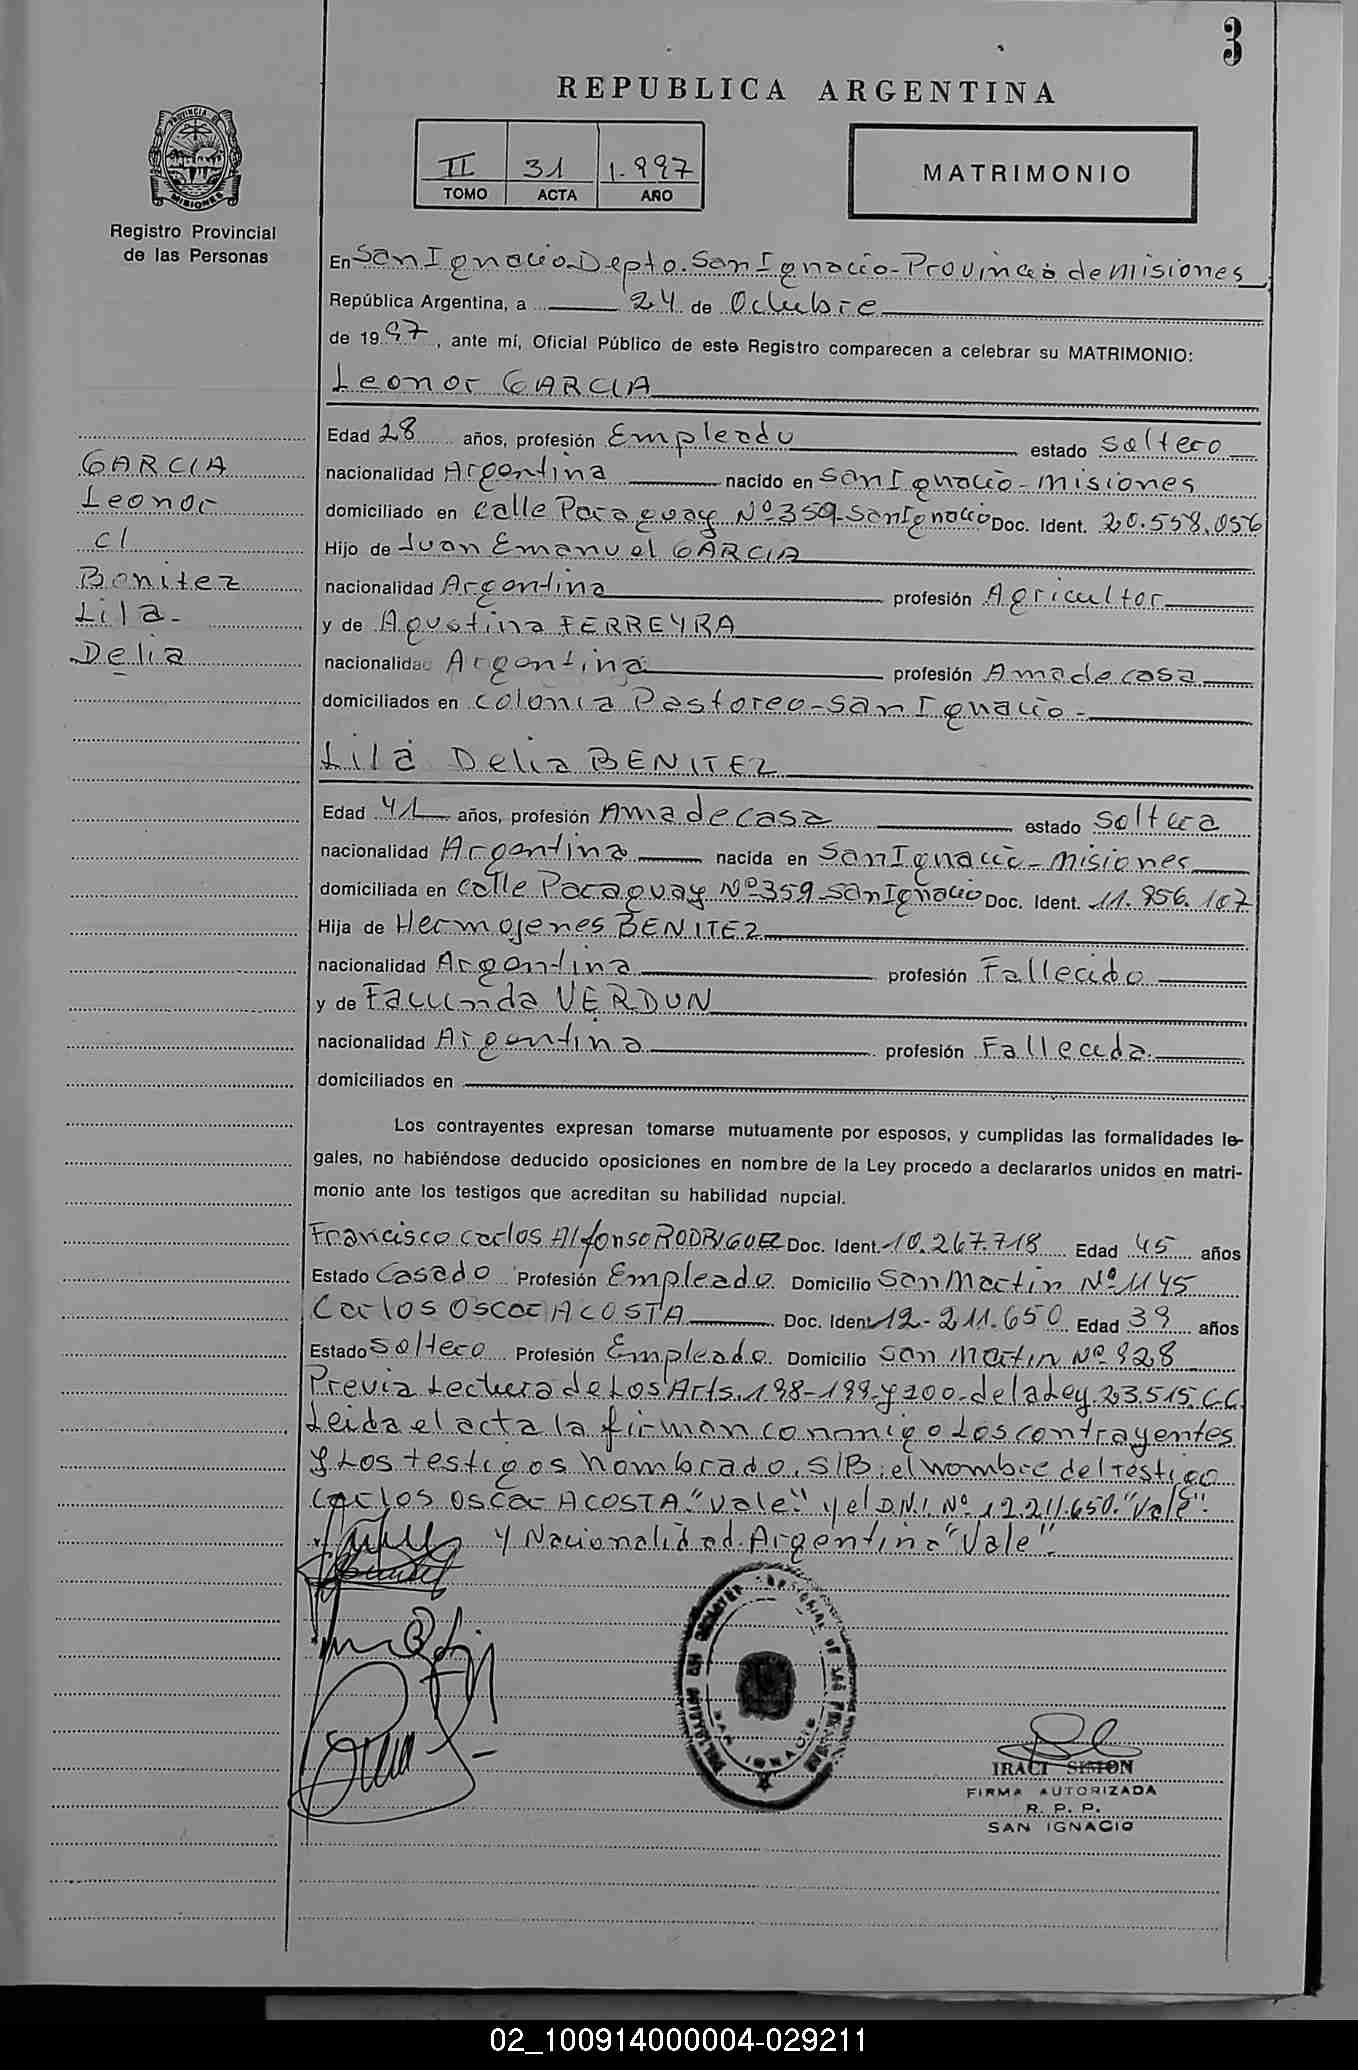 3
REPUBLICA ARGENTINA
PROVINCIA DE
MISIONES
Registro Provincial
de las Personas
II 31 1.997
TOMO ACTA AÑO
MATRIMONIO
En San Ignacio Depto. San Ignacio - Provincia de Misiones
República Argentina, a 24 de Octubre
de 1997, ante mí, Oficial Público de este Registro comparecen a celebrar su MATRIMONIO:
Leonor GARCIA
Edad 28 años, profesión Empleado estado soltero
nacionalidad Argentina nacido en San Ignacio - Misiones
domiciliado en calle Paraguay Nº 359 - San Ignacio Doc. Ident. 20.558.056
Hijo de Juan Emanuel GARCIA
nacionalidad Argentina profesión Agricultor
y de Agustina FERREYRA
nacionalidad Argentina profesión Ama de casa
domiciliados en Colonia Pastoreo - San Ignacio -
GARCIA
Leonor
c/
Benitez
Lila -
Delia
Lila Delia BENITEZ
Edad 41 años, profesión Ama de casa estado soltera
nacionalidad Argentina nacida en San Ignacio - Misiones
domiciliada en calle Paraguay Nº 359 - San Ignacio Doc. Ident. 11.956.107
Hija de Hermojenes BENITEZ
nacionalidad Argentina profesión Fallecido
y de Facunda VERDUN
nacionalidad Argentina profesión Fallecida
domiciliados en
Los contrayentes expresan tomarse mutuamente por esposos, y cumplidas las formalidades le-
gales, no habiéndose deducido oposiciones en nombre de la Ley procedo a declararlos unidos en matri-
monio ante los testigos que acreditan su habilidad nupcial.
Francisco Carlos Alfonso RODRIGUEZ Doc. Ident. 10.267.718 Edad 45 años
Estado Casado Profesión Empleado Domicilio San Martin Nº 1145
Carlos Oscar ACOSTA Doc. Ident 12-211.650 Edad 39 años
Estado Soltero Profesión Empleado Domicilio San Martin Nº 928
Previa Lectura de Los Arts. 198-199-y 200 - de la Ley 23.515 C.C.
Leida el acta la firman conmigo Los contrayentes
y Los testigos Nombrado. S/B: el nombre del testigo
Carlos Oscar ACOSTA "vale" y el D.N.I. Nº 12.211.650. "Vale".
y Nacionalidad Argentina "Vale".
SAN IGNACIO
IRACI SIMON
FIRMA AUTORIZADA
R. P. P.
SAN IGNACIO
02_100914000004-029211